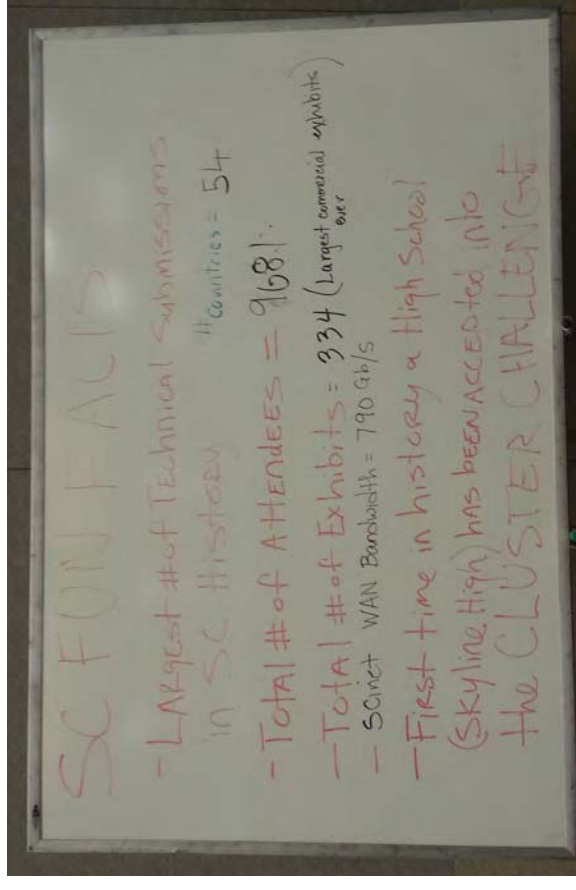 SC FUN FACTS
- LARgest # of Technical Submissions
in SC HistoRy
# countries = 54
- TotAl # of AttendEES = 9681
- TotAl # of Exhibits = 334 (Largest commercial exhibits ever)
- SCinet WAN Bandwidth = 790 Gb/s
- FiRst time in histoRy a High School
(Skyline High) hAs been ACCEPted into
the CLUSTER CHALLENGE